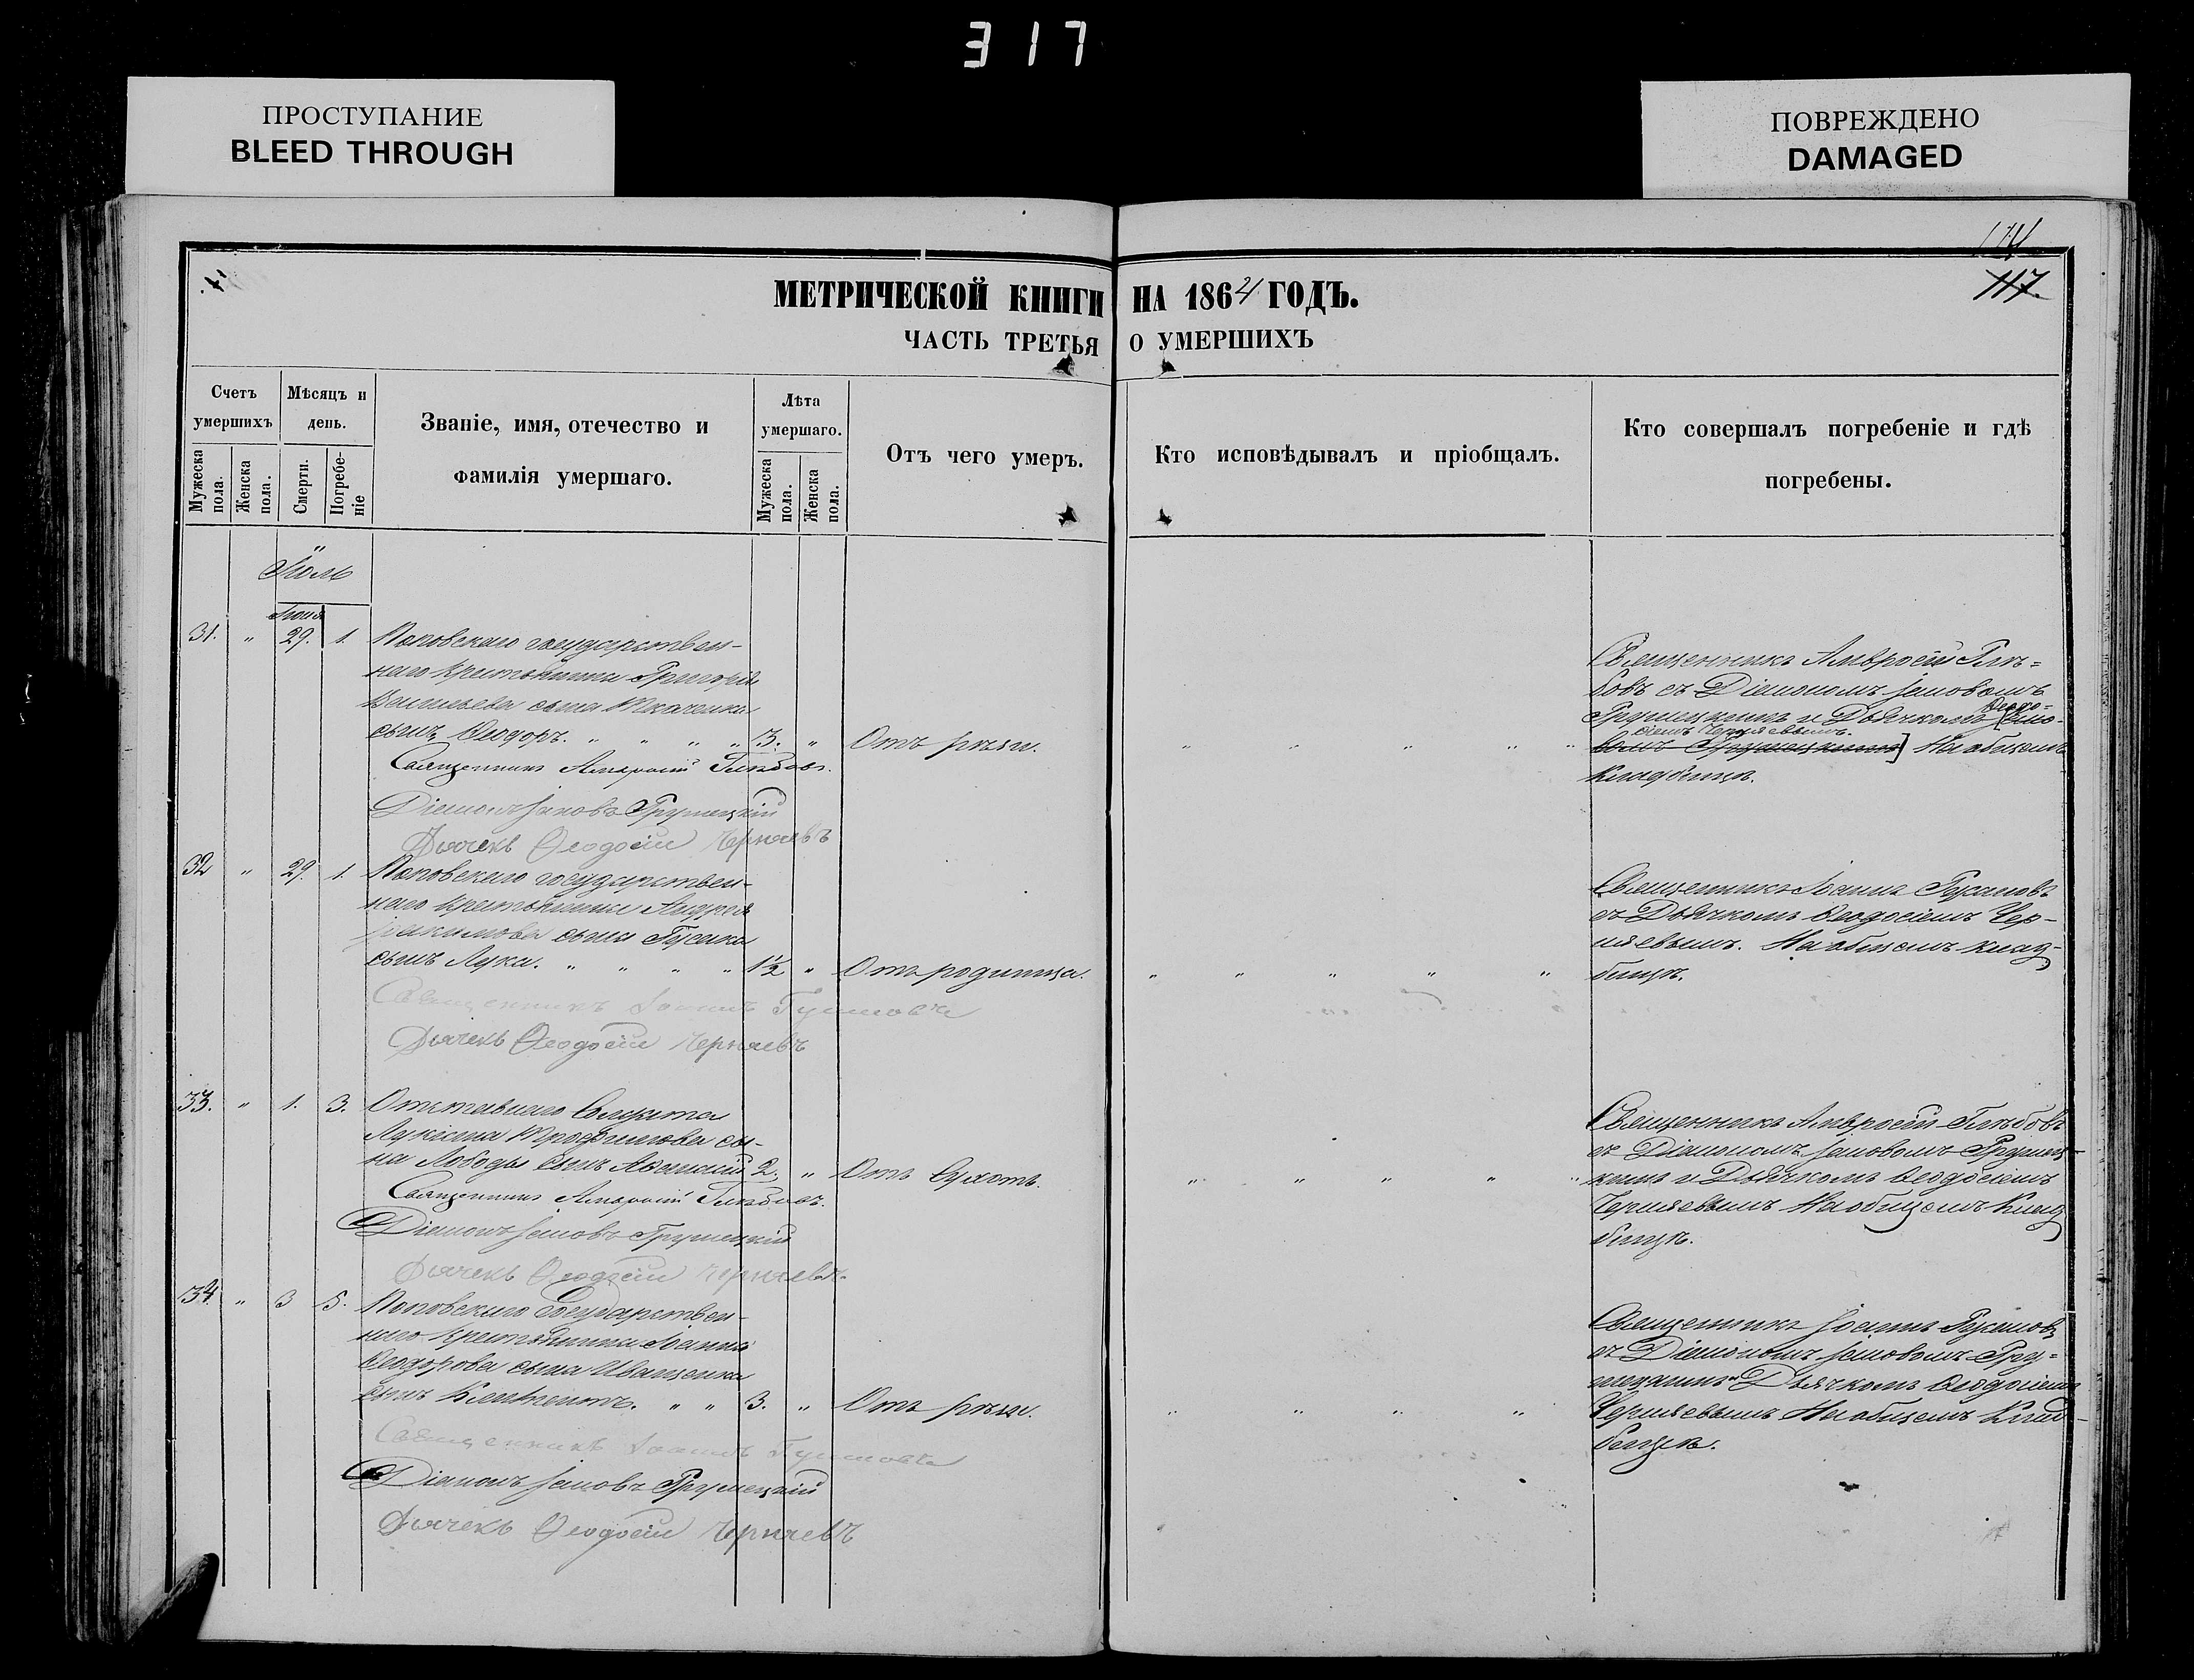 317
ПРОСТУПАНИЕ
BLEED THROUGH
ПОВРЕЖДЕНО
DAMAGED
117.
МЕТРИЧЕСКОЙ КНИГИ НА 1864 ГОДЪ.
ЧАСТЬ ТРЕТЬЯ О УМЕРШИХЪ
Счетъ умершихъ
Мужеска пола.
Женска пола.
Мѣсяцъ и день.
Смерти.
Погребе-
ніе
Званіе, имя, отечество и
фамилія умершаго.
Лѣта умершаго.
Мужеска пола.
Женска пола.
Отъ чего умеръ.
Кто исповѣдывалъ и пріобщалъ.
Кто совершалъ погребеніе и гдѣ
погребены.
Іюль
Іюня
31. " 29. 1. Поповскаго государствен-
наго крестьянина Григорія
Васильева сына Ткаченка
сынъ Ѳеодоръ. " " " " 3. " Отъ рѣзи.
Священникъ Амвросій Глѣбовъ.
Діаконъ Іаковъ Грушецкій
Дьячекъ Ѳеодосій Черняевъ
Священникъ Амвросій Глѣ=
бовъ съ Діакономъ Іаковомъ
Грушецкимъ и Дьячкомъ Ѳеодо=
сіемъ Черняевымъ.
На общемъ
кладбищѣ.
32 " 29. 1. Поповскаго государствен-
наго крестьянина Андрея
Іакимова сына Гусака
сынъ Лука. " " " " 1½ " Отъ родимца.
Священникъ Іоаннъ
Дьячекъ Ѳеодосій Черняевъ
Священникъ Іоаннъ
съ Дьячкомъ Ѳеодосіемъ Чер-
няевымъ. На общемъ клад-
бищѣ.
33. " 1. 3. Отставнаго Солдата
Лукіана Трофимова сы-
на Лободы сынъ Аѳанасій 2. " Отъ Сухотъ.
Священникъ Амвросій Глѣбовъ.
Діаконъ Іаковъ Грушецкій
Дьячекъ Ѳеодосій Черняевъ.
Священникъ Амвросій Глѣбовъ
съ Діакономъ Іаковомъ Грушец-
кимъ и Дьячкомъ Ѳеодосіемъ
Черняевымъ На общемъ Клад
бищѣ.
34. " 3 5. Поповскаго Государствен-
наго крестьянина Іоанна
Ѳеодорова сына Иващенка
сынъ Климентъ. " " 3. " Отъ рѣзи.
Священникъ Іоаннъ
Діаконъ Іаковъ Грушецкій
Дьячекъ Ѳеодосій Черняевъ
Священникъ Іоаннъ
съ Діакономъ Іаковомъ Гру=
шецкимъ и Дьячкомъ Ѳеодосіемъ
Черняевымъ На общемъ Клад-
бищѣ.